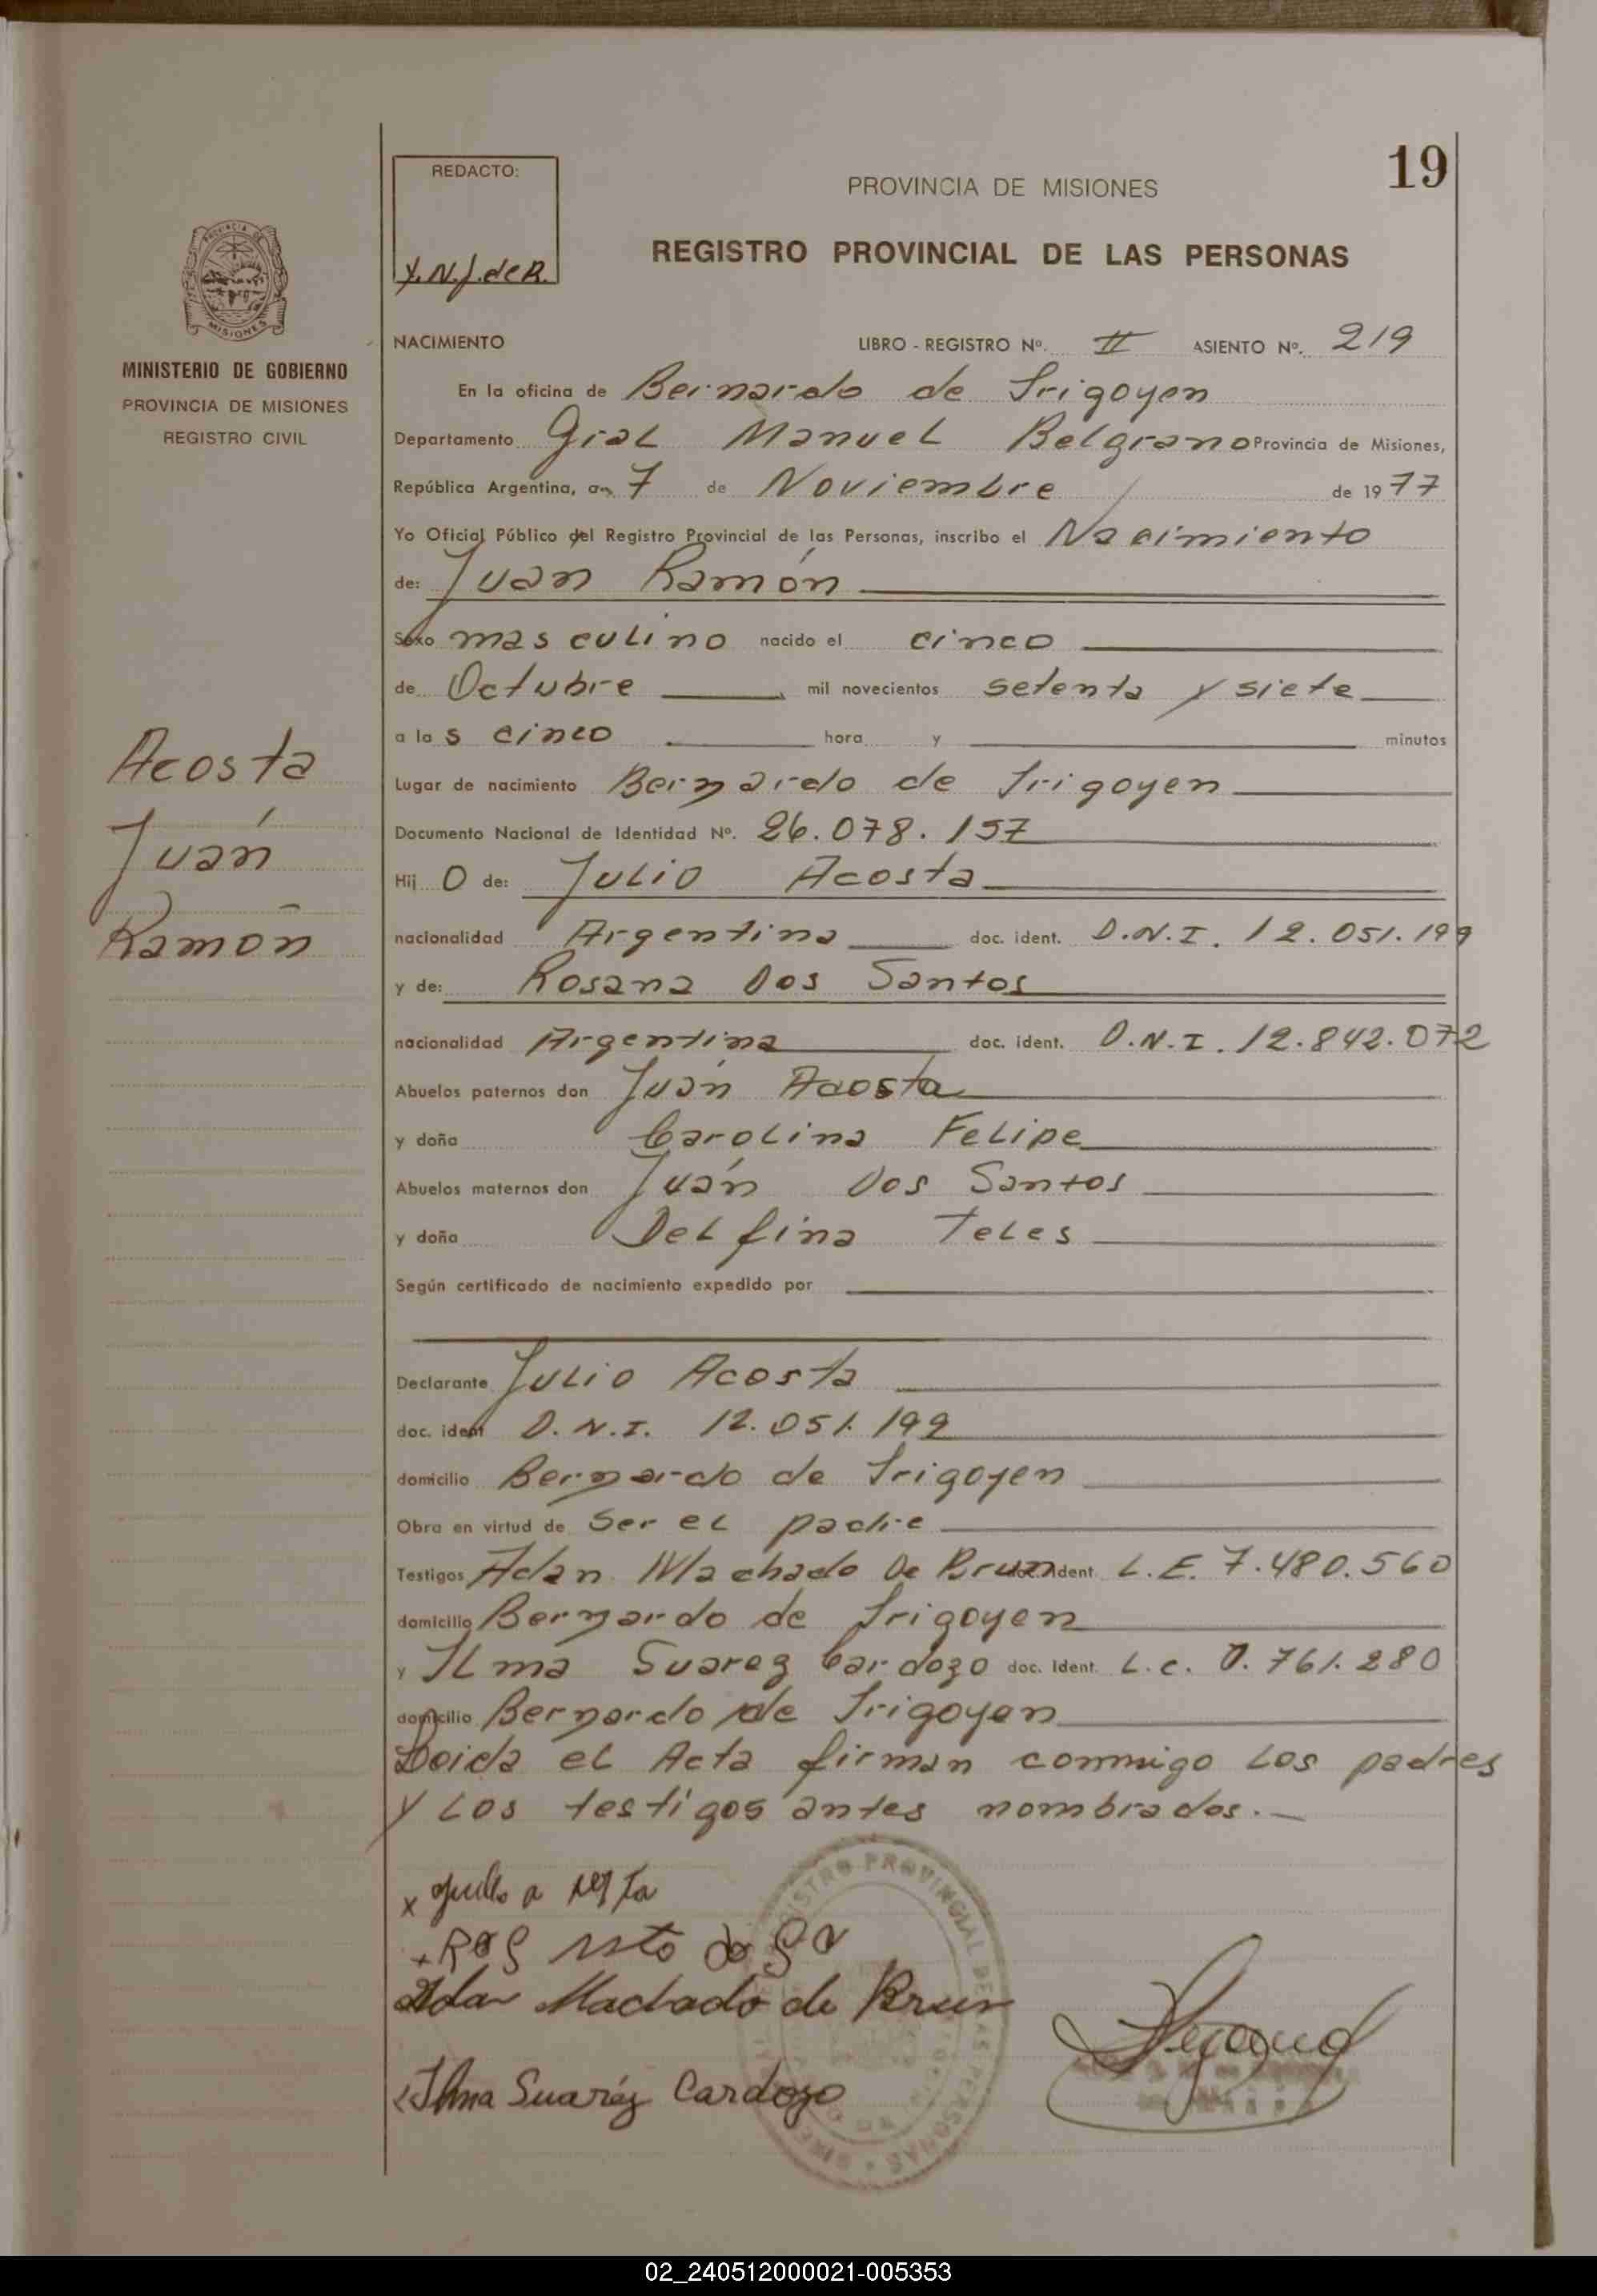 19
REDACTO:
PROVINCIA DE MISIONES
REGISTRO PROVINCIAL DE LAS PERSONAS
MINISTERIO DE GOBIERNO
PROVINCIA DE MISIONES
REGISTRO CIVIL
NACIMIENTO LIBRO - REGISTRO Nº. II ASIENTO Nº. 219
En la oficina de Bernardo de Irigoyen
Departamento Gral Manuel Belgrano Provincia de Misiones,
República Argentina, a 7 de Noviembre de 1977
Yo Oficial Público del Registro Provincial de las Personas, inscribo el Nacimiento
de: Juan Ramón
Sexo masculino nacido el cinco
de Octubre mil novecientos setenta y siete
a las cinco hora y minutos
Lugar de nacimiento Bernardo de Irigoyen
Documento Nacional de Identidad Nº. 26.078.157
Hijo de: Julio Acosta
nacionalidad Argentina doc. ident. D.N.I. 12.051.199
y de: Rosana Dos Santos
nacionalidad Argentina doc. ident. D.N.I. 12.842.072
Abuelos paternos don Juán Acosta
y doña Carolina Felipe
Abuelos maternos don Juán Dos Santos
y doña Delfina Teles
Según certificado de nacimiento expedido por
Declarante Julio Acosta
doc. ident D.N.I. 12.051.199
domicilio Bernardo de Irigoyen
Obra en virtud de ser el padre
Testigos Adan Machado De Brun doc. ident L.E. 7.480.560
domicilio Bernardo de Irigoyen
y Ilma Suarez Cardozo doc. Ident. L.C. 0.761.280
domicilio Bernardo de Irigoyen
Leida el Acta firman conmigo los padres
y los testigos antes nombrados.—
Acosta
Juán
Ramón
Adan Machado de Brun
Ilma Suaréz Cardozo
REGISTRO PROVINCIAL DE LAS PERSONAS
02_240512000021-005353